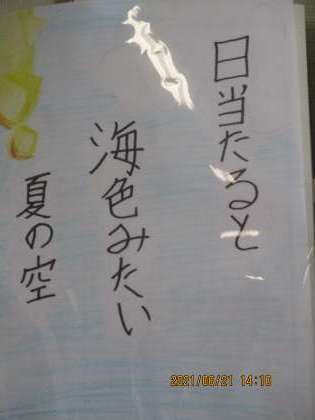 日当たると
海色みたい
夏の空
2021/06/21 14:10